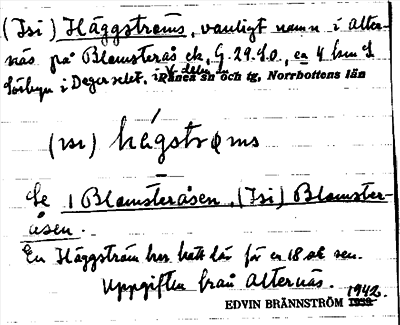 (Isi) Häggströms, vanligt namn i Alter-
näs på Blomsteråsen, G. 29.90, ca 4 km S
Sörbyn i Degerselet, i V. delen av
Råneå sn och tg, Norrbottens län
(ısı) hägströms
Se 1 Blomsteråsen, (Isi) Blomster-
åsen.
En Häggström har haft den för en 18 år sen.
Uppgiften från Alternäs.
EDVIN BRÄNNSTRÖM 1942.